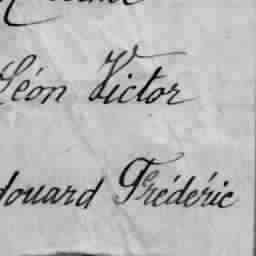 Léon Victor
douard Frédéric